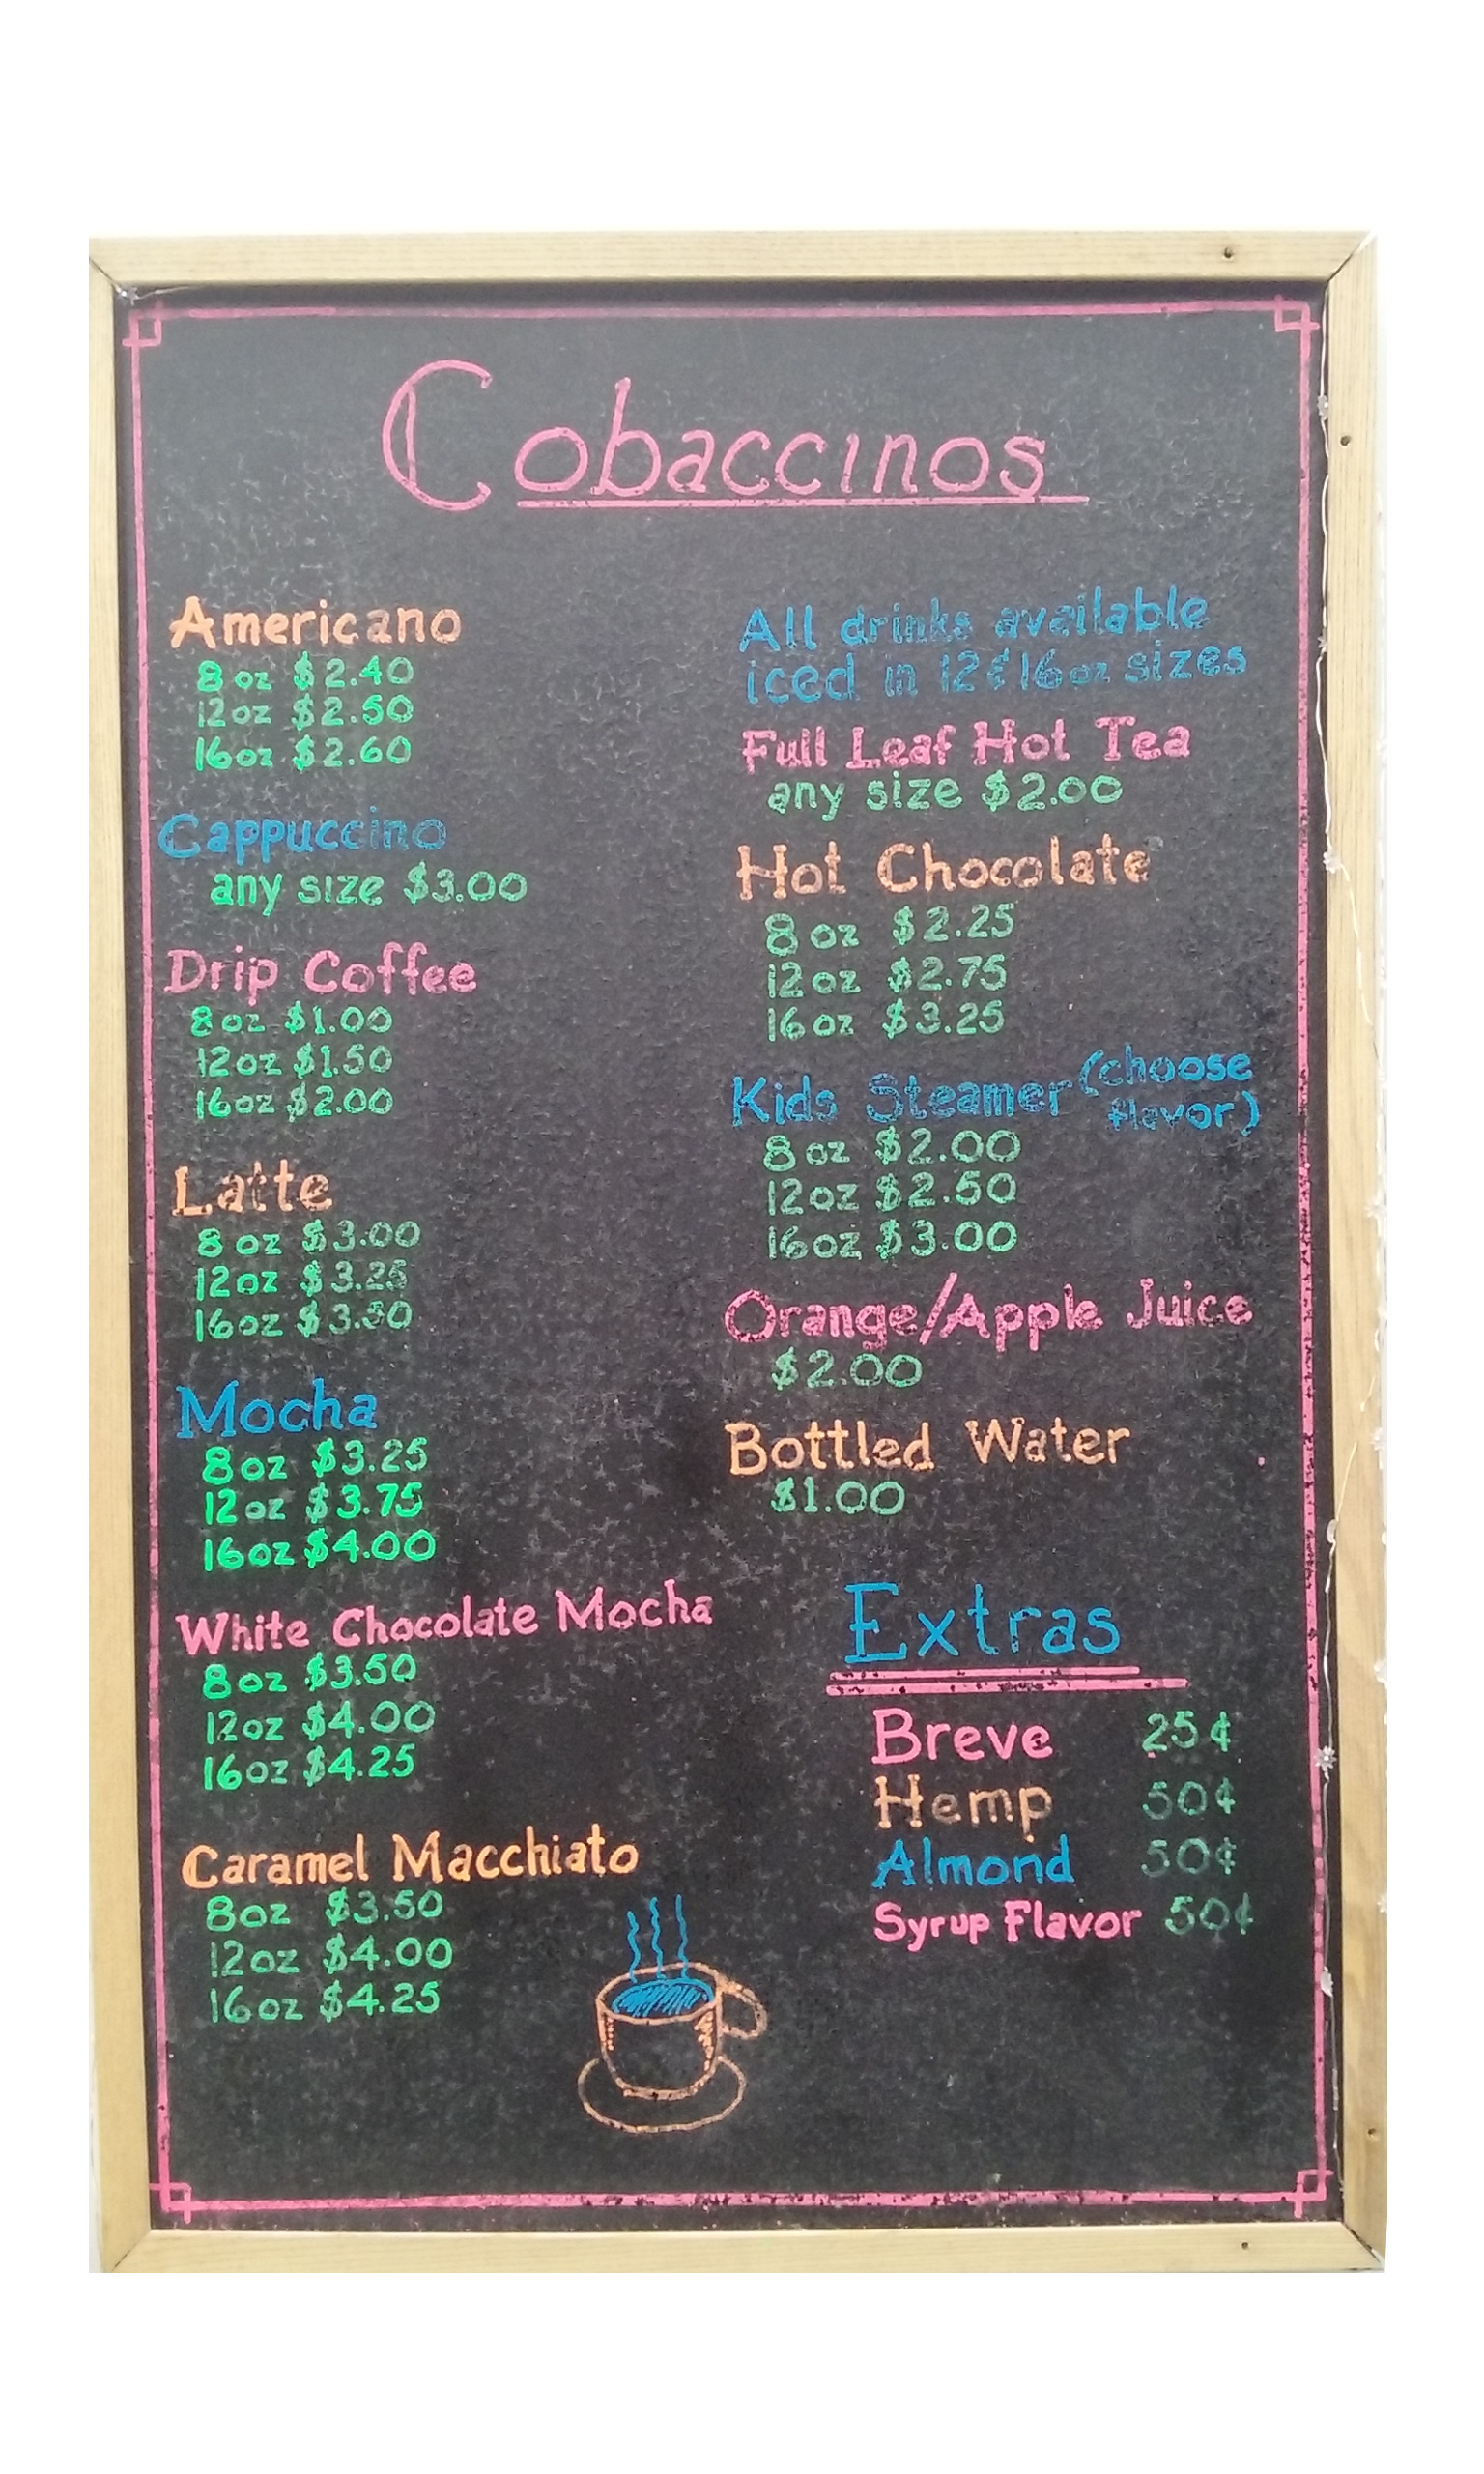 Cobaccinos
Americano
8 oz $2.40
12oz $2.50
16oz $2.60
Cappuccino
any size $3.00
Drip Coffee
8 oz $1.00
12oz $1.50
16oz $2.00
Latte
8 oz $3.00
12oz $3.25
16oz $3.50
Mocha
8oz $3.25
12oz $3.75
16oz $4.00
White Chocolate Mocha
8oz $3.50
12oz $4.00
16oz $4.25
Caramel Macchiato
8oz $3.50
12oz $4.00
16oz $4.25
All drinks available
iced in 12 & 16oz sizes
Full Leaf Hot Tea
any size $2.00
Hot Chocolate
8 oz $2.25
12oz $2.75
16oz $3.25
Kids Steamer (choose
flavor)
8 oz $2.00
12oz $2.50
16oz $3.00
Orange/Apple Juice
$2.00
Bottled Water
$1.00
Extras
Breve 25¢
Hemp 50¢
Almond 50¢
Syrup Flavor 50¢